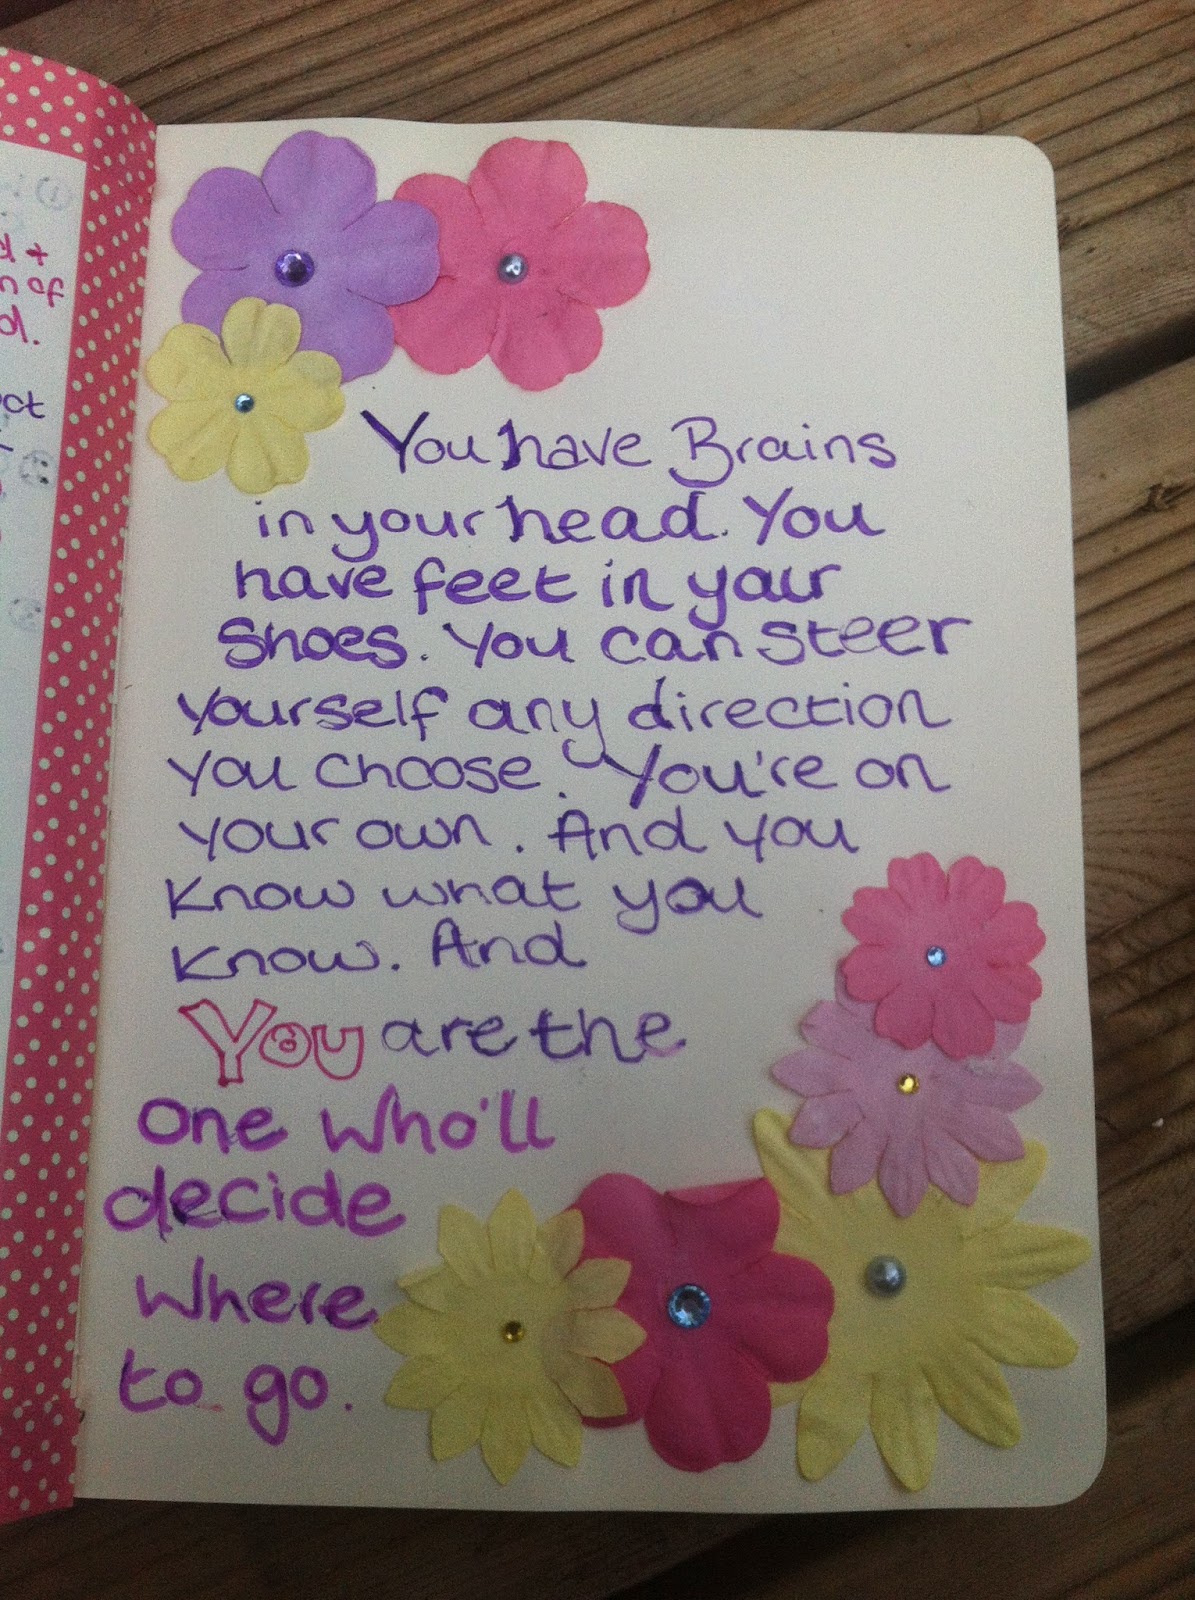 d +
n of
d.
ct
You have Brains
in your head. You
have feet in your
Shoes. You can steer
yourself any direction
you choose. You're on
your own. And you
know what you
know. And
You are the
one who'll
decide
where
to go.